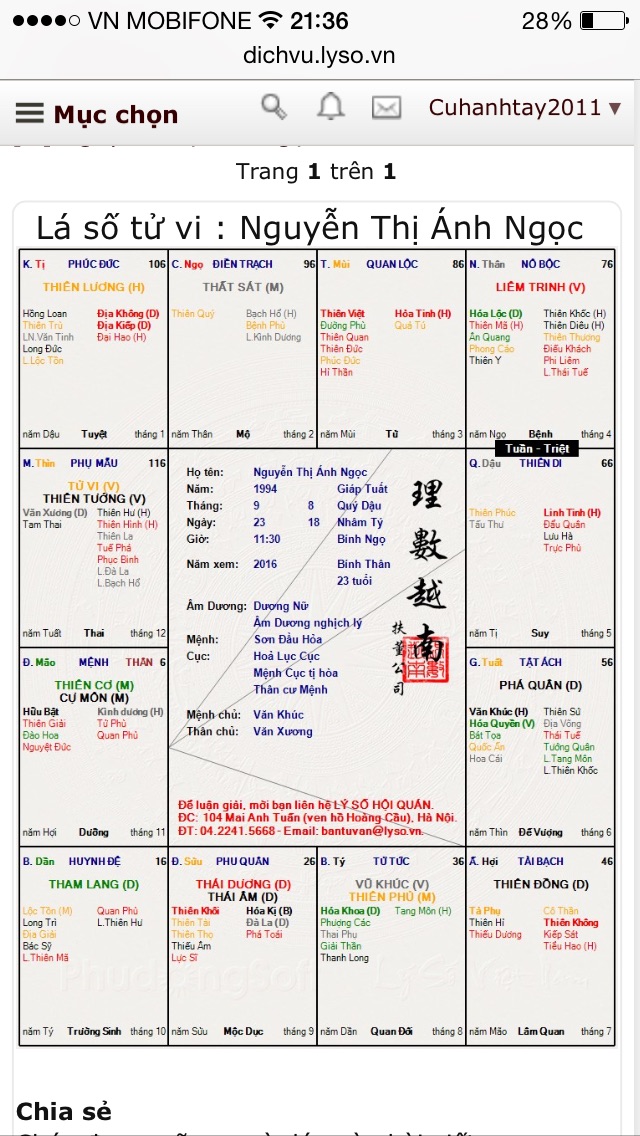 VN MOBIFONE 21:36 28%
dichvu.lyso.vn
Mục chọn Cuhanhtay2011 ▼
Trang 1 trên 1
Lá số tử vi : Nguyễn Thị Ánh Ngọc
K. Tị PHÚC ĐỨC 106
THIÊN LƯƠNG (H)
Hồng Loan Địa Không (D)
Thiên Trù Địa Kiếp (D)
LN.Văn Tinh Đại Hao (H)
Long Đức
L.Lộc Tồn
năm Dậu Tuyệt tháng 1
C. Ngọ ĐIỀN TRẠCH 96
THẤT SÁT (M)
Thiên Quý Bạch Hổ (H)
Bệnh Phù
L.Kình Dương
năm Thân Mộ tháng 2
T. Mùi QUAN LỘC 86
Thiên Việt Hỏa Tinh (H)
Đường Phù Quả Tú
Thiên Quan
Thiên Đức
Phúc Đức
Hỉ Thần
năm Mùi Tử tháng 3
N. Thân NÔ BỘC 76
LIÊM TRINH (V)
Hóa Lộc (D) Thiên Khốc (H)
Thiên Mã (H) Thiên Diêu (H)
Ân Quang Thiên Thương
Phong Cáo Điếu Khách
Thiên Y Phi Liêm
L.Thái Tuế
năm Ngọ Bệnh tháng 4
Tuần - Triệt
M.Thìn PHỤ MẪU 116
TỬ VI (V)
THIÊN TƯỚNG (V)
Văn Xương (D) Thiên Hư (H)
Tam Thai Thiên Hình (H)
Thiên La
Tuế Phá
Phục Binh
L.Đà La
L.Bạch Hổ
năm Tuất Thai tháng 12
Họ tên: Nguyễn Thị Ánh Ngọc
Năm: 1994 Giáp Tuất
Tháng: 9 8 Quý Dậu
Ngày: 23 18 Nhâm Tý
Giờ: 11:30 Bính Ngọ
Năm xem: 2016 Bính Thân
23 tuổi
Âm Dương: Dương Nữ
Âm Dương nghịch lý
Mệnh: Sơn Đầu Hỏa
Cục: Hoả Lục Cục
Mệnh Cục tị hòa
Thân cư Mệnh
Mệnh chủ: Văn Khúc
Thân chủ: Văn Xương
理數越南
扶董公司
Để luận giải, mời bạn liên hệ LÝ SỐ HỘI QUÁN.
ĐC: 104 Mai Anh Tuấn (ven hồ Hoàng Cầu), Hà Nội.
ĐT: 04.2241.5668 - Email: bantuvan@lyso.vn.
Q. Dậu THIÊN DI 66
Thiên Phúc Linh Tinh (H)
Tấu Thư Đẩu Quân
Lưu Hà
Trực Phù
năm Tị Suy tháng 5
Đ. Mão MỆNH THÂN 6
THIÊN CƠ (M)
CỰ MÔN (M)
Hữu Bật Kình dương (H)
Thiên Giải Tử Phù
Đào Hoa Quan Phủ
Nguyệt Đức
năm Hợi Dưỡng tháng 11
G. Tuất TẬT ÁCH 56
PHÁ QUÂN (D)
Văn Khúc (H) Thiên Sứ
Hóa Quyền (V) Địa Võng
Bát Tọa Thái Tuế
Quốc Ấn Tướng Quân
Hoa Cái L.Tang Môn
L.Thiên Khốc
năm Thìn Đế Vượng tháng 6
B. Dần HUYNH ĐỆ 16
THAM LANG (D)
Lộc Tồn (M) Quan Phù
Long Trì L.Thiên Hư
Địa Giải
Bác Sỹ
L.Thiên Mã
năm Tý Trường Sinh tháng 10
Đ. Sửu PHU QUÂN 26
THÁI DƯƠNG (D)
THÁI ÂM (D)
Thiên Khôi Hóa Kị (B)
Thiên Tài Đà La (D)
Thiên Thọ Phá Toái
Thiếu Âm
Lực Sĩ
năm Sửu Mộc Dục tháng 9
B. Tý TỬ TỨC 36
VŨ KHÚC (V)
THIÊN PHỦ (M)
Hóa Khoa (D) Tang Môn (H)
Phượng Các
Thai Phụ
Giải Thần
Thanh Long
năm Dần Quan Đới tháng 8
Ấ. Hợi TÀI BẠCH 46
THIÊN ĐỒNG (D)
Tả Phụ Cô Thần
Thiên Hỉ Thiên Không
Thiếu Dương Kiếp Sát
Tiểu Hao (H)
năm Mão Lâm Quan tháng 7
Chia sẻ